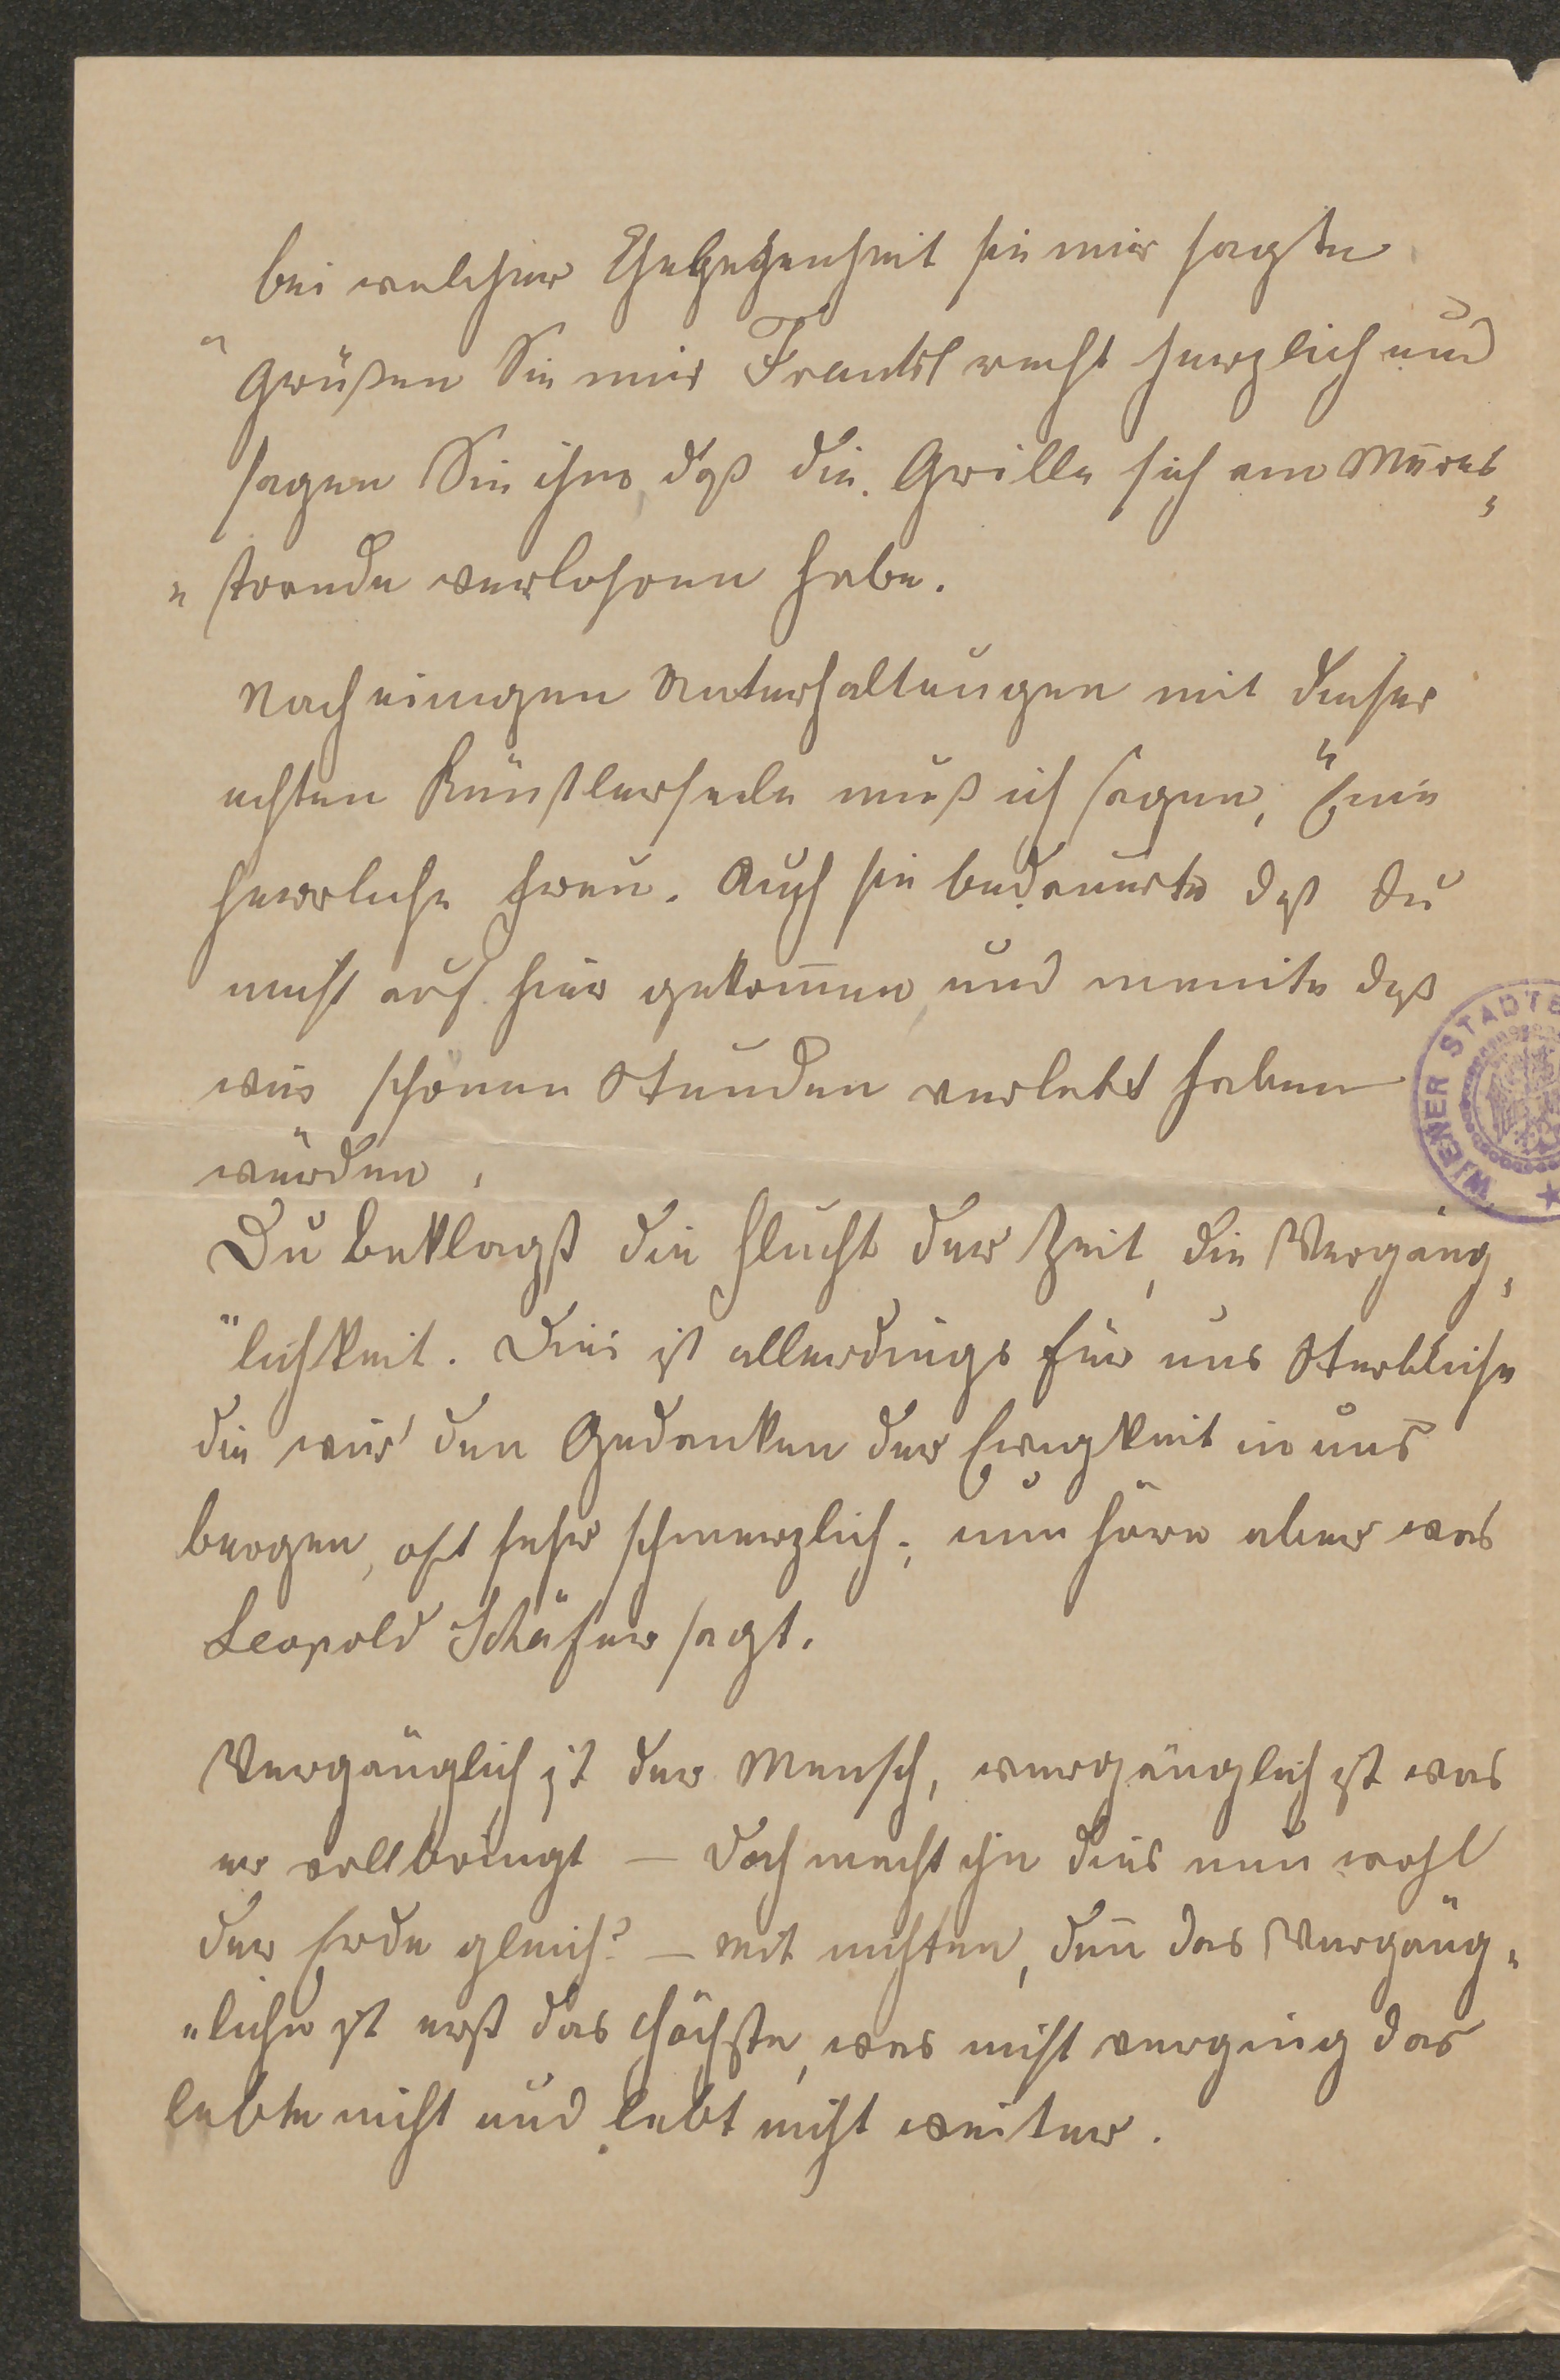 bei welcher Gelegenheit sie mir sagte
"Grüßen Sie mir Frankl recht herzlich und
sagen Sie ihm, daß die Grille sich am Meeres„
„strande verlohren habe.
Nach einigen Unterhaltungen mit dieser
echten Künstlerseele muß ich sagen, "Eine
herrliche Frau. Auch sie bedauerte daß Du
nicht auch hier gekom̄en, und meinte daß
wir schönen Stunden verlebt haben
würden.
Du beklagst die Flucht der Zeit, die Vergäng„
"lichkeit. Dies ist allerdings für uns Sterbliche
die wir den Gedanken der Ewigkeit in uns
bergen, oft sehr schmerzlich; nun höre aber was
Leopold Schäfer sagt.
Vergänglich ist der Mensch, vergänglich ist was
er vollbringt — doch macht ihn dies nun wohl
der Erde gleich? — mit nichten, den̄ das Vergäng„
„liche ist erst das Höchste, was nicht verging das
lebte nicht und lebt nicht weiter.
WIENER STADTB